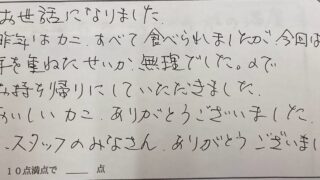 お世話になりました.
昨年はカニ、すべて食べられましたが、今回は
年を重ねたせいか、無理でした。ので
お持ち帰りにしていただきました。
おいしいカニ、ありがとうございました。
スタッフのみなさん、ありがとうございまし
10点満点で 点